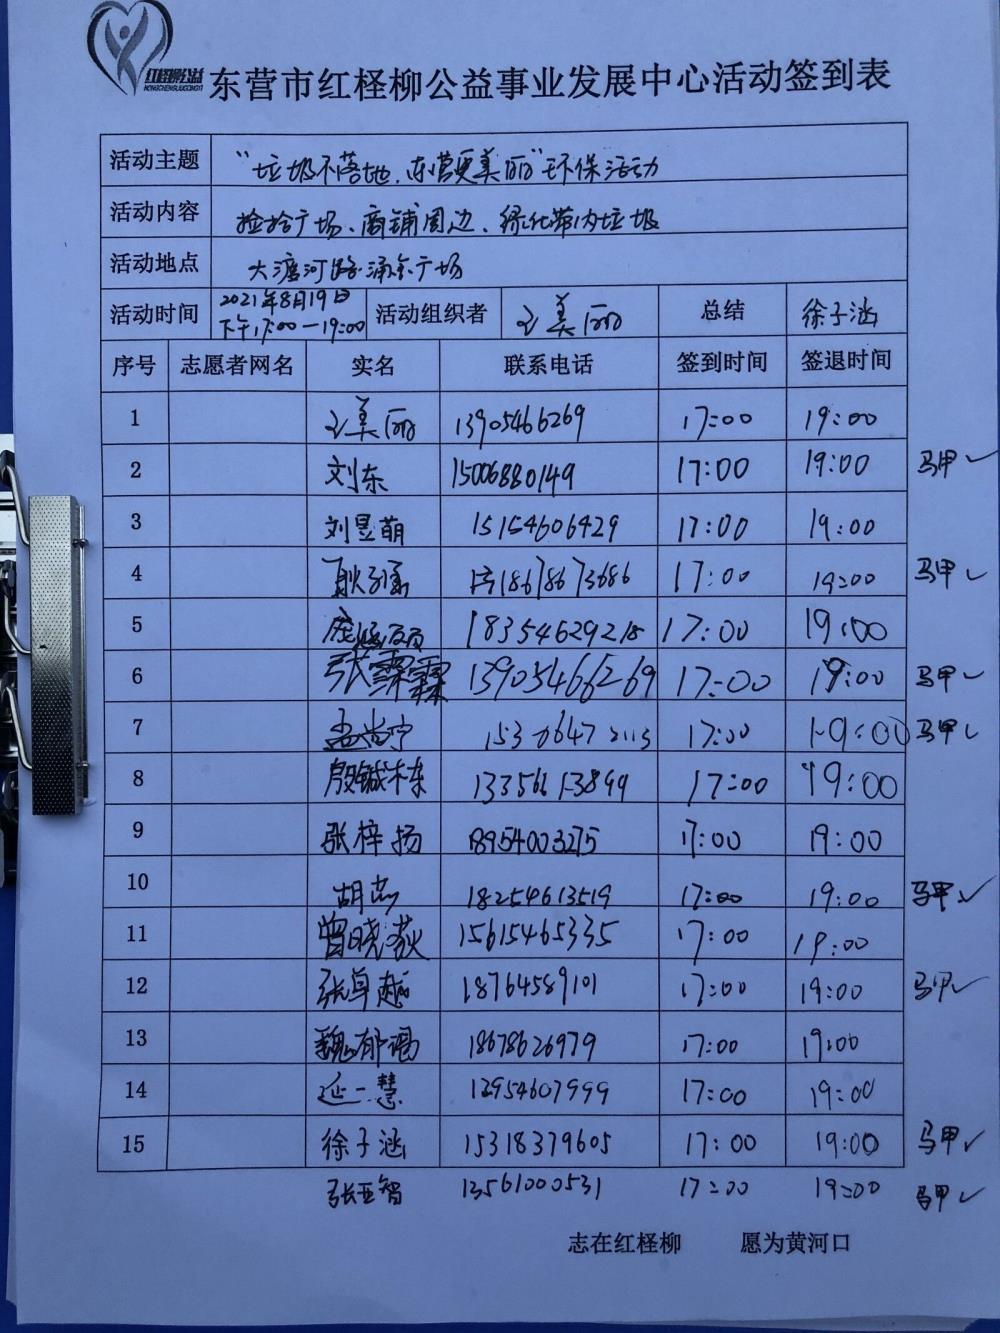 红柽柳公益
HONGCHENGLIUGONGYI
东营市红柽柳公益事业发展中心活动签到表
活动主题 “垃圾不落地,东营更美丽”环保活动
活动内容 捡拾广场、商铺周边、绿化带内垃圾
活动地点 大渡河路涌金广场
活动时间 2021年8月19日 下午17:00—19:00 活动组织者 王美丽 总结 徐子涵
序号 志愿者网名 实名 联系电话 签到时间 签退时间
1 王美丽 13905466269 17:00 19:00
2 刘东 15006880149 17:00 19:00 马甲✓
3 刘昱萌 15154606429 17:00 19:00
4 耿子涵 18678673686 17:00 19:00 马甲✓
5 18354629218 17:00 19:00
6 张霖霖 13905466269 17:00 19:00 马甲✓
7 孟尚宁 15306472113 17:00 19:00 马甲✓
8 殷铖栋 13356613899 17:00 19:00
9 张梓扬 18954003275 17:00 19:00
10 胡志 18254613519 17:00 19:00 马甲✓
11 曾晓荻 15615465335 17:00 19:00
12 张卓越 18764589101 17:00 19:00 马甲✓
13 魏郁 18678626979 17:00 19:00
14 延一慧 12954607999 17:00 19:00
15 徐子涵 15318379605 17:00 19:00 马甲✓
张亚智 13561000531 17:00 19:00 马甲✓
志在红柽柳 愿为黄河口